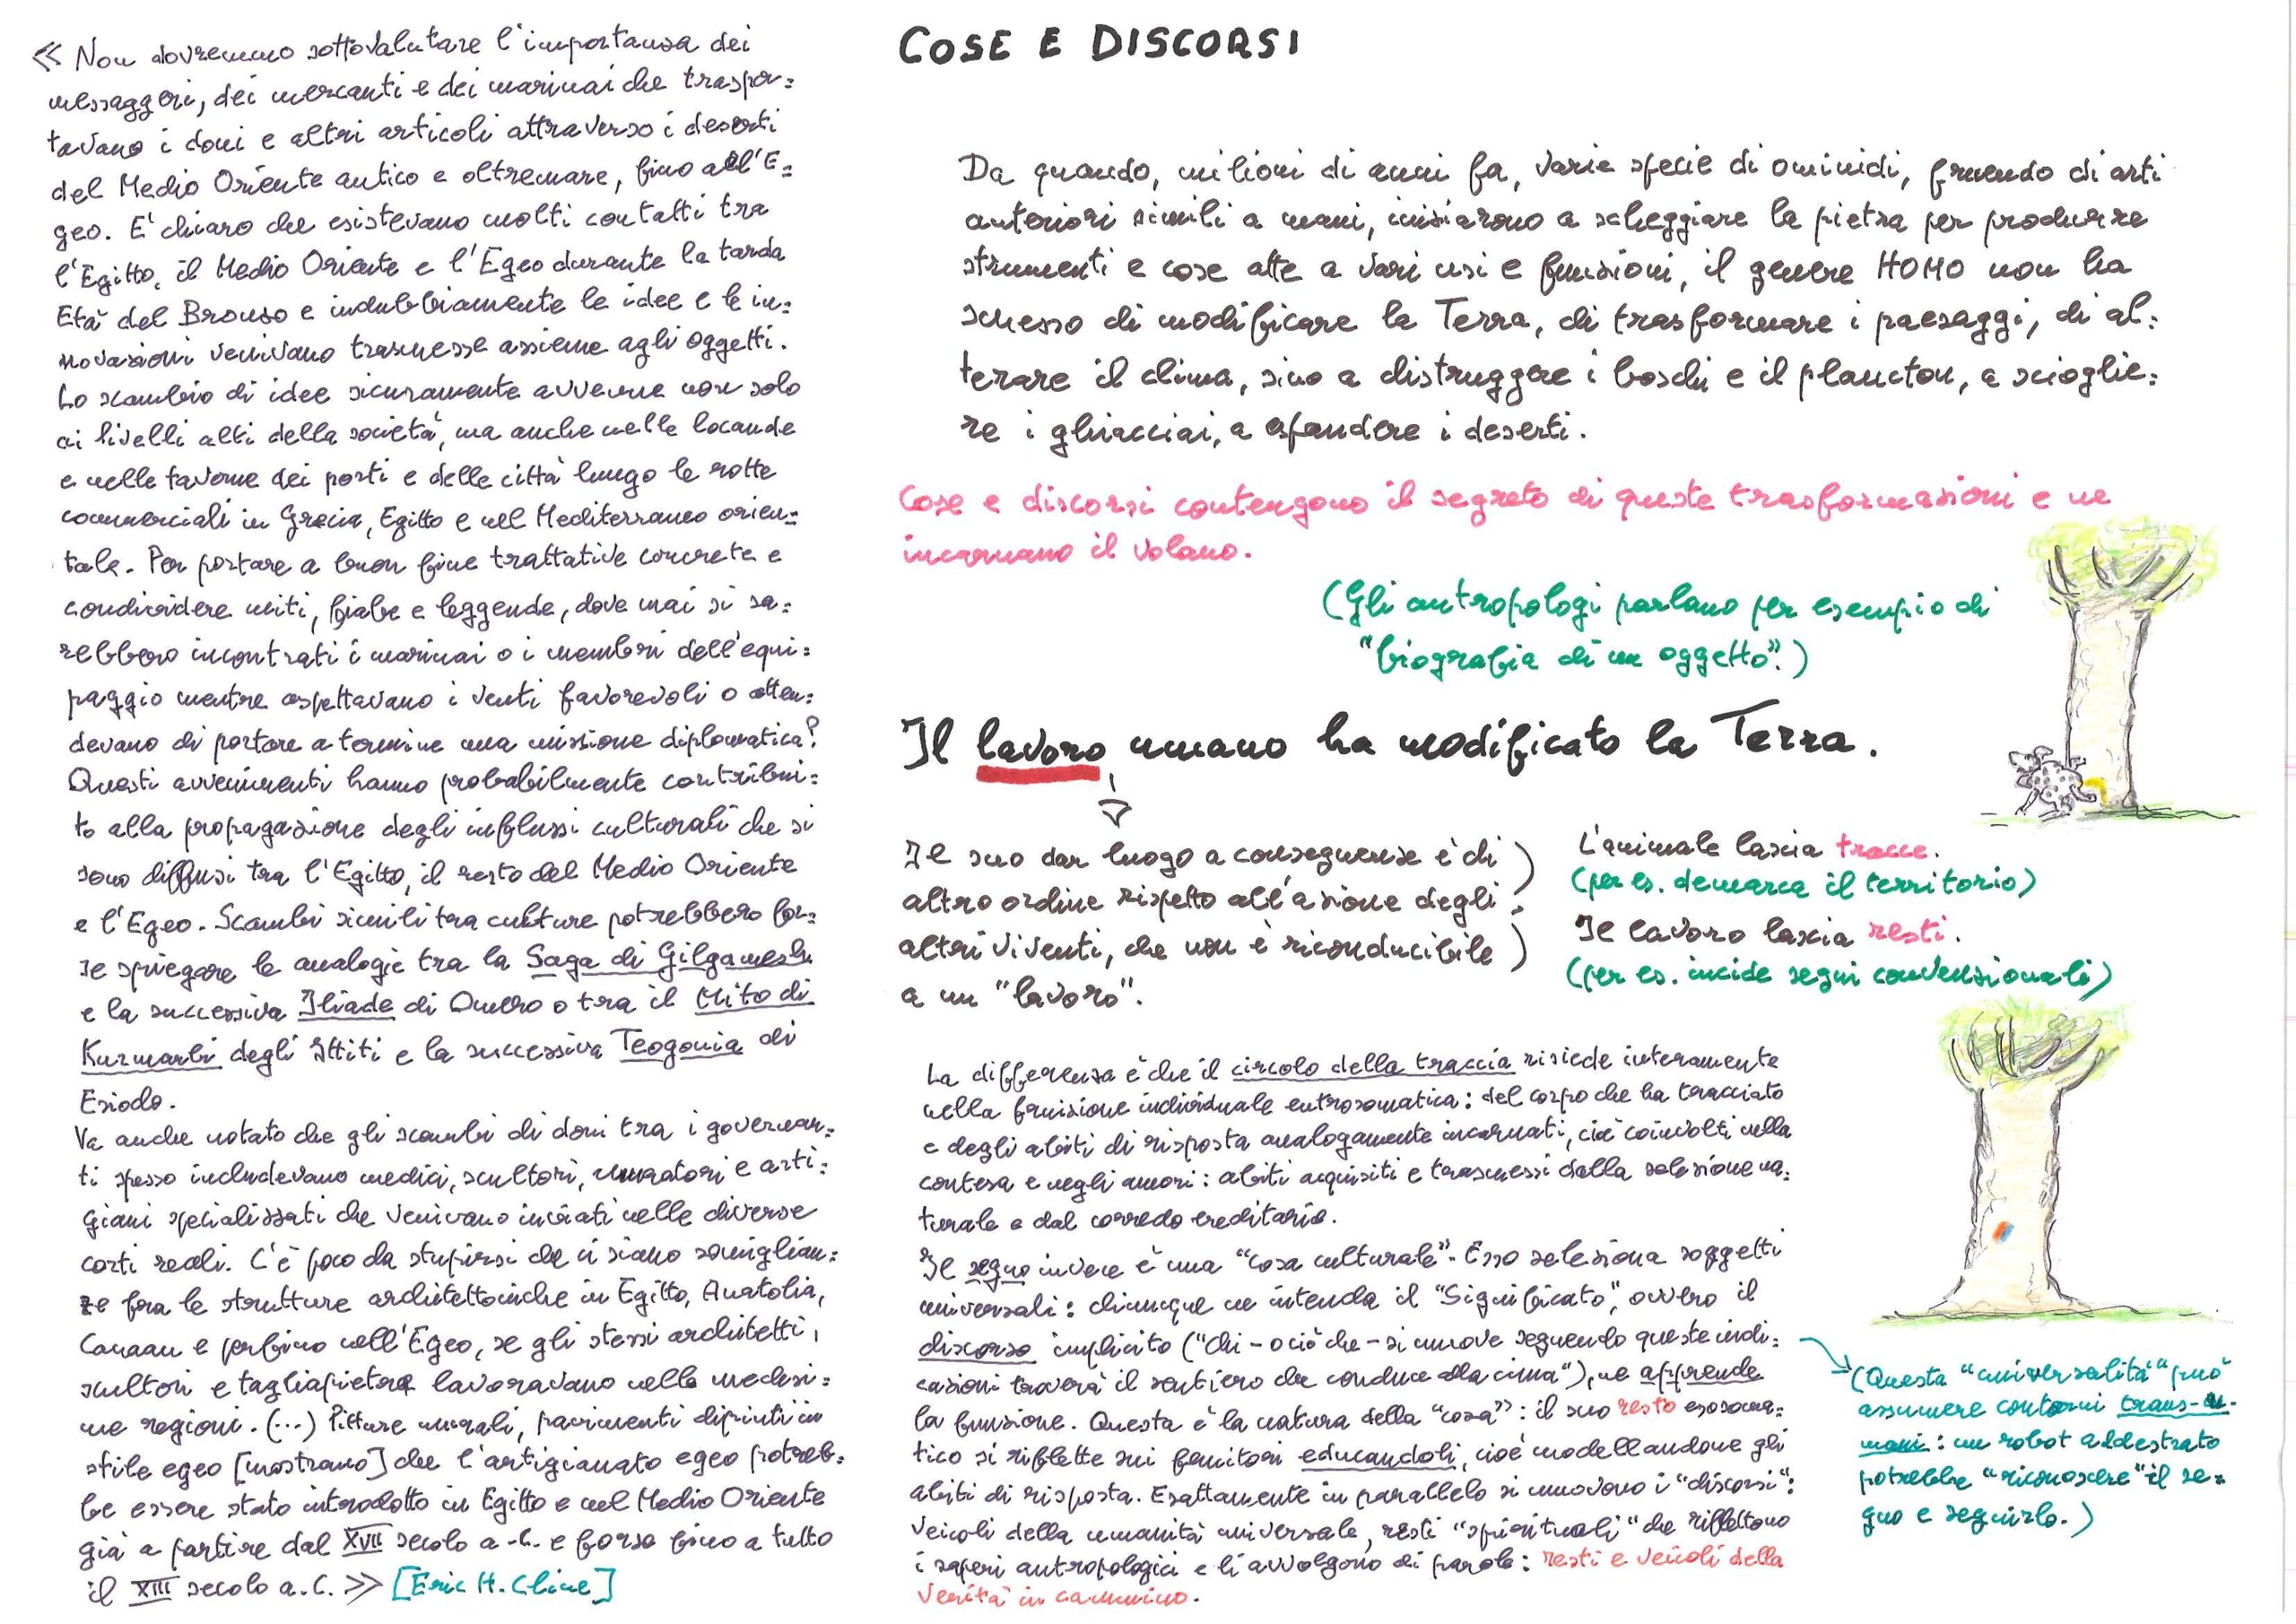 « Non dovremmo sottovalutare l'importanza dei
messaggeri, dei mercanti e dei marinai che traspor=
tavano i doni e altri articoli attraverso i deserti
del Medio Oriente antico e oltremare, fino all'E=
geo. E' chiaro che esistevano molti contatti tra
l'Egitto, il Medio Oriente e l'Egeo durante la tarda
Età del Bronzo e indubbiamente le idee e le in=
novazioni venivano trasmesse assieme agli oggetti.
Lo scambio di idee sicuramente avvenne non solo
ai livelli alti della società, ma anche nelle locande
e nelle taverne dei porti e delle città lungo le rotte
commerciali in Grecia, Egitto e nel Mediterraneo orien=
tale. Per portare a buon fine trattative concrete e
condividere miti, fiabe e leggende, dove mai si sa=
rebbero incontrati i marinai o i membri dell'equi=
paggio mentre aspettavano i venti favorevoli o atten=
devano di portare a termine una missione diplomatica?
Questi avvenimenti hanno probabilmente contribui=
to alla propagazione degli influssi culturali che si
sono diffusi tra l'Egitto, il resto del Medio Oriente
e l'Egeo. Scambi simili tra culture potrebbero for=
se spiegare le analogie tra la Saga di Gilgamesh
e la successiva Iliade di Omero o tra il Mito di
Kurmarbi degli Ittiti e la successiva Teogonia di
Esiodo.
Va anche notato che gli scambi di doni tra i governan=
ti spesso includevano medici, scultori, muratori e arti=
giani specializzati che venivano inviati nelle diverse
corti reali. C'è poco da stupirsi che ci siano somiglian=
ze fra le strutture architettoniche in Egitto, Anatolia,
Canaan e perfino nell'Egeo, se gli stessi architetti,
scultori e tagliapietre lavoravano nelle medesi=
me regioni. (...) Pitture murali, pavimenti dipinti in
stile egeo [mostrano] che l'artigianato egeo potreb=
be essere stato introdotto in Egitto e nel Medio Oriente
già a partire dal XVII secolo a.C. e forse fino a tutto
il XIII secolo a.C. » [Eric H. Cline]
COSE E DISCORSI
Da quando, milioni di anni fa, varie specie di ominidi, fruendo di arti
anteriori simili a mani, iniziarono a scheggiare la pietra per produrre
strumenti e cose atte a vari usi e funzioni, il genere HOMO non ha
smesso di modificare la Terra, di trasformare i paesaggi, di al=
terare il clima, sino a distruggere i boschi e il plancton, a scioglie=
re i ghiacciai, a espandere i deserti.
Cose e discorsi contengono il segreto di queste trasformazioni e ne
incarnano il volano.
(Gli antropologi parlano per esempio di
"biografia di un oggetto".)
Il lavoro umano ha modificato la Terra.
Il suo dar luogo a conseguenze è di
altro ordine rispetto all'azione degli
altri viventi, che non è riconducibile
a un "lavoro".
L'animale lascia tracce.
(per es. demarca il territorio)
Il lavoro lascia resti.
(per es. incide segni convenzionali)
La differenza è che il circolo della traccia risiede interamente
nella fruizione individuale entrosomatica: del corpo che ha tracciato
e degli abiti di risposta analogamente incarnati, cioè coinvolti nella
contesa e negli amori: abiti acquisiti e trasmessi dalla selezione na=
turale e dal corredo ereditario.
Il segno invece è una "cosa culturale". Esso seleziona soggetti
universali: chiunque ne intenda il "significato", ovvero il
discorso implicito ("chi - o ciò che - si muove seguendo queste indi=
cazioni troverà il sentiero che conduce alla cima"), ne apprende
la funzione. Questa è la natura della "cosa": il suo resto esosoma=
tico si riflette sui fruitori educandoli, cioè modellandone gli
abiti di risposta. Esattamente in parallelo si muovono i "discorsi":
veicoli della umanità universale, resti "spirituali" che riflettono
i saperi antropologici e li avvolgono di parole: resti e veicoli della
verità in cammino.
(Questa "universalità" può
assumere contorni trans-u=
mani: un robot addestrato
potrebbe "riconoscere" il se=
gno e seguirlo.)